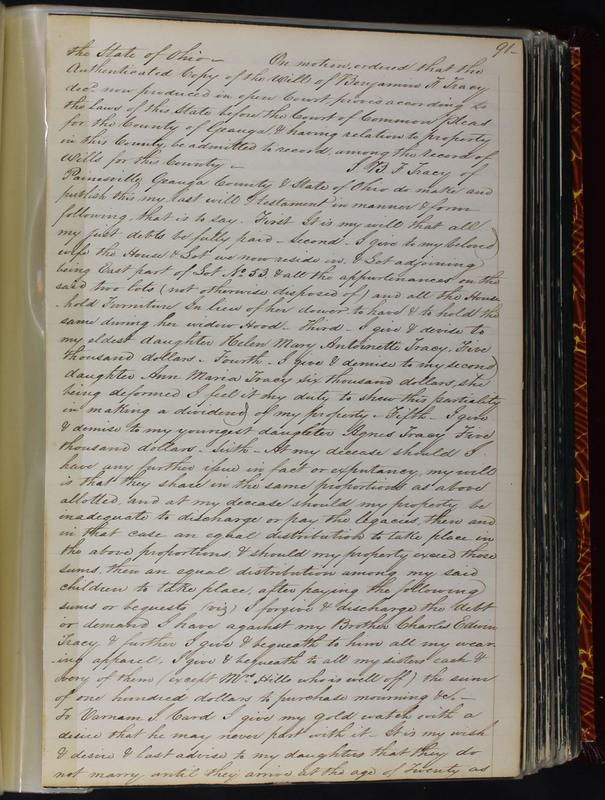 91-
the State of Ohio - On motion, ordered that the
Authenticated Copy of the Will of Benjamin F. Tracy
decd now produced in open Court, proved according to
the laws of this State before the Court of Common Pleas
for the County of Geauga, & having relation to property
in this County, be admitted to record, among the record of
Wills for this County - I, B. F Tracy of
Painesville, Geauga County & State of Ohio do make and
publish this my last will & testament in manner & form
following, that is to say. First It is my will that all
my just debts be fully paid - Second - I give to my beloved
wife the House & Lot we now reside in, & Lot adjoining
being East part of Lot No 53, & all the appurtenances on the
said two lots (not otherwise disposed of) and all the House
-hold Furniture In lieu of her dower, to have & to hold the
same during her widow Hood - Third - I give & devise to
my eldest daughter Helen Mary Antoinette Tracy, Five
thousand dollars - Fourth - I give & demise to my second
daughter Ann Maria Tracy six thousand dollars, she
being deformed I feel it my duty to shew this partiality
in making a dividend of my property - Fifth - I give
& demise to my youngest daughter Agnes Tracy Five
thousand dollars - Sixth - At my decease should I
have any further issue in fact or expectancy, my will
is that they share in the same proportions as above
allotted, and at my decease should my property be
inadequate to discharge or pay the legacies, then and
in that case an equal distribution to take place in
the above proportions, & should my property exceed those
sums, then an equal distribution among my said
children to take place, after paying the following
sums or bequests (viz) I forgive & discharge the debt
or demand I have against my Brother Charles Edwin
Tracy & further I give & bequeath to him all my wear
-ing apparel, I give & bequeath to all my sisters each &
every of them (except Mrs. Hills who is well off) the sum
of one hundred dollars to purchase mourning &c. -
To Varnam J. Card I give my gold watch with a
desire that he may never part with it - It is my wish
& desire & last advise to my daughters that they do
not marry until they arrive at the age of Twenty as